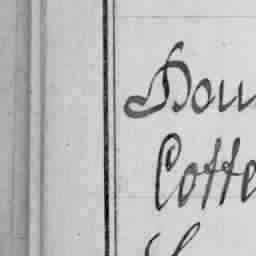 Dou
Cotte